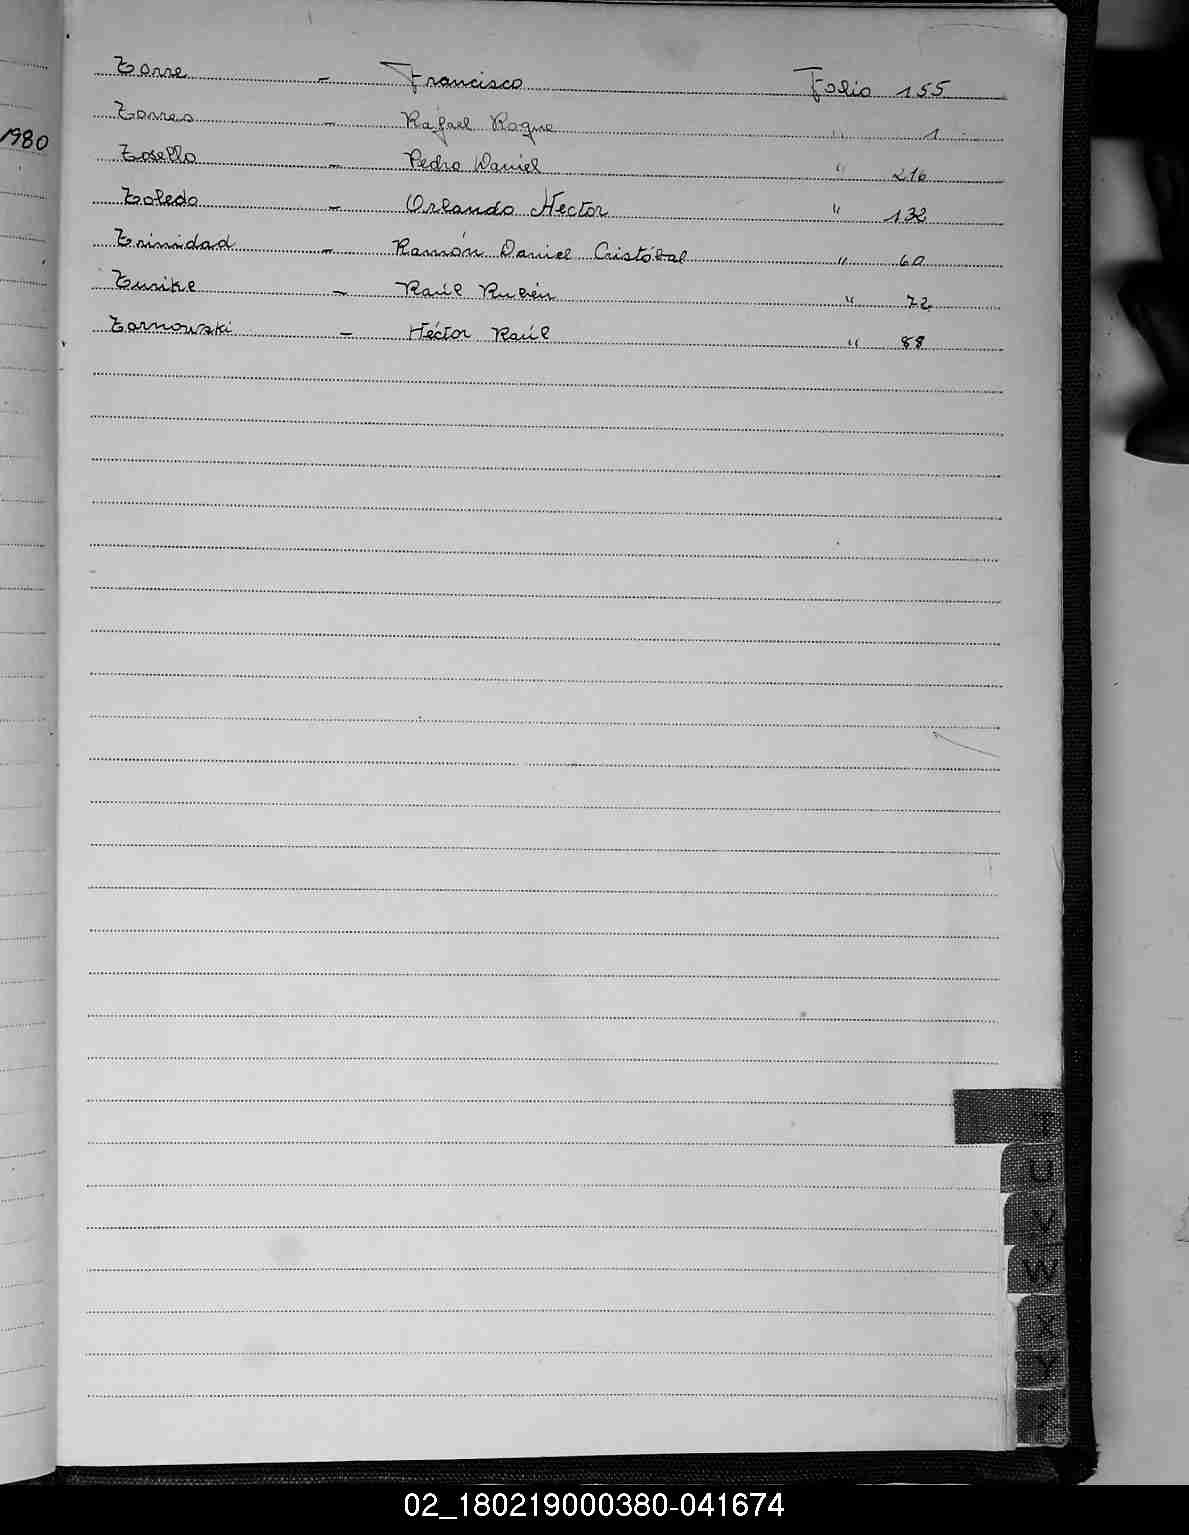 Torre - Francisco Folio 155
1980
Torres - Rafael Roque " 1
Tosello - Pedro Daniel " 216
Toledo - Orlando Hector " 132
Trinidad - Ramón Daniel Cristóbal " 60
Tunike - Raúl Rubén " 72
Tarnowski - Héctor Raúl " 88
T
U
V
W
X
Y
02_180219000380-041674